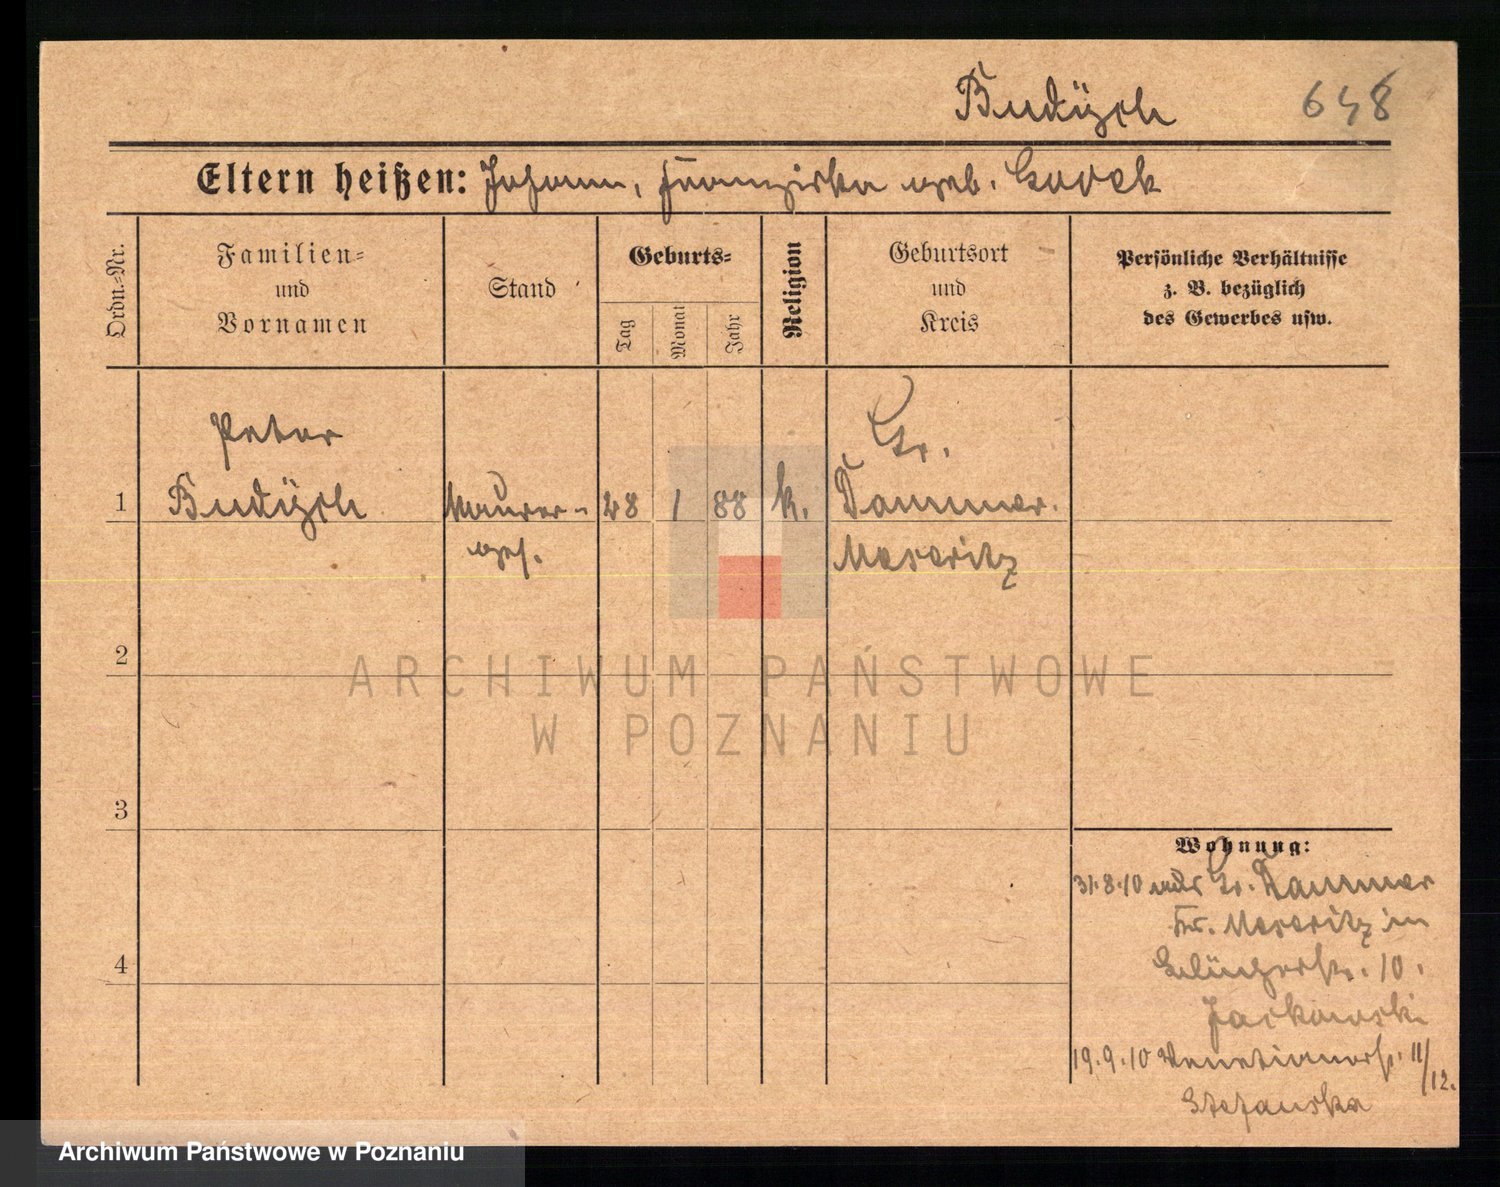 Budüsch 648
Eltern heißen: Johann, Franziska geb.
Ordn.-Nr.
Familien-
und
Vornamen
Stand
Geburts-
Tag
Monat
Jahr
Religion
Geburtsort
und
Kreis
Persönliche Verhältnisse
z. B. bezüglich
des Gewerbes usw.
Peter
1 Budüsch Maurer- 28 1 88 k. Gr.
Dammer.
ges. Meseritz
2
3
4
Wohnung:
31.8.10 aus Gr. Dammer
Kr. Meseritz in
10.
Jackowski
19.9.10 Venetianerstr. 11/12.
Stefanska
ARCHIWUM PAŃSTWOWE
W POZNANIU
Archiwum Państwowe w Poznaniu